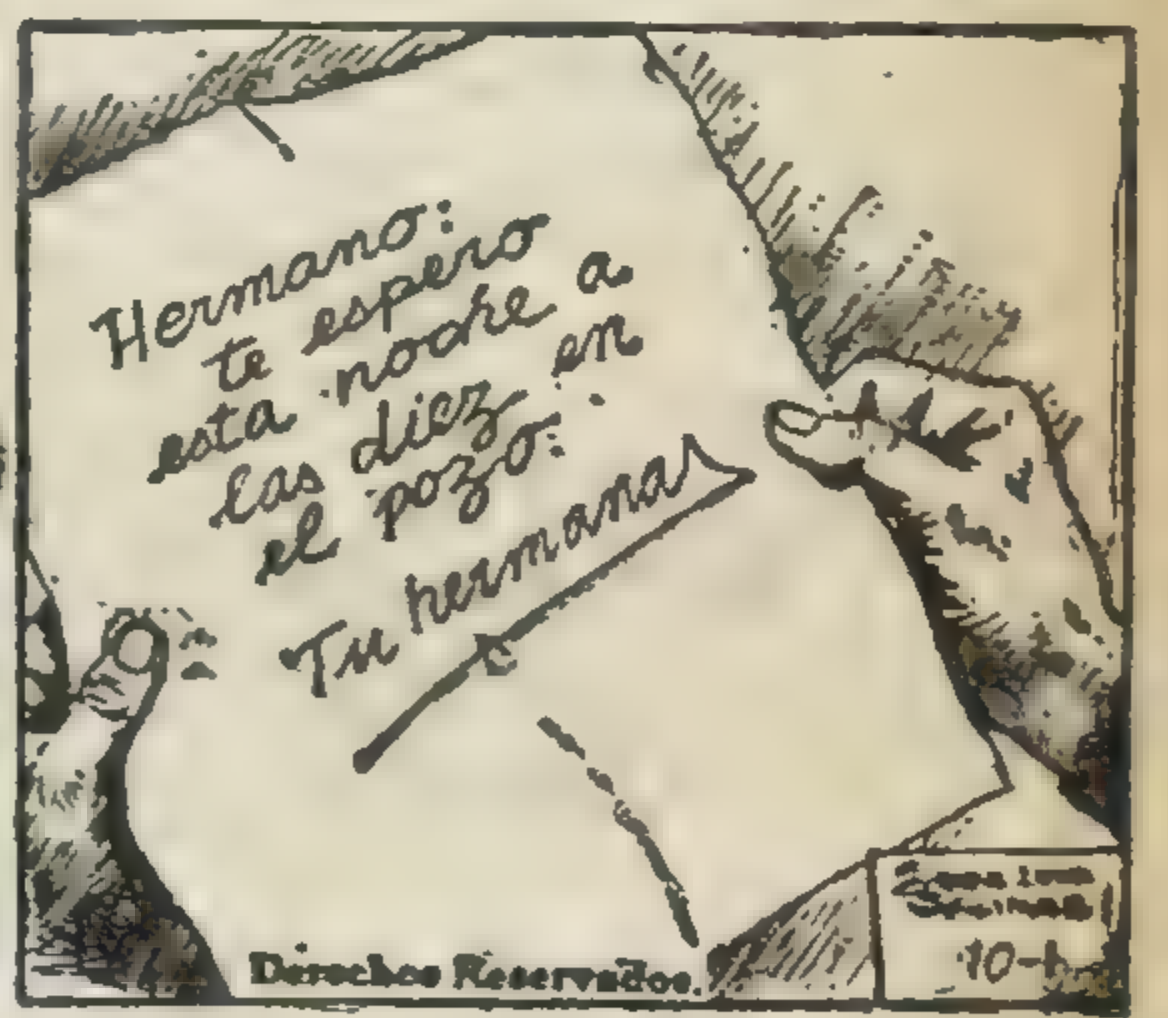 Hermano:
te espero
esta noche a
las diez en
el pozo.
Tu hermana
Derechos Reservados.
10-